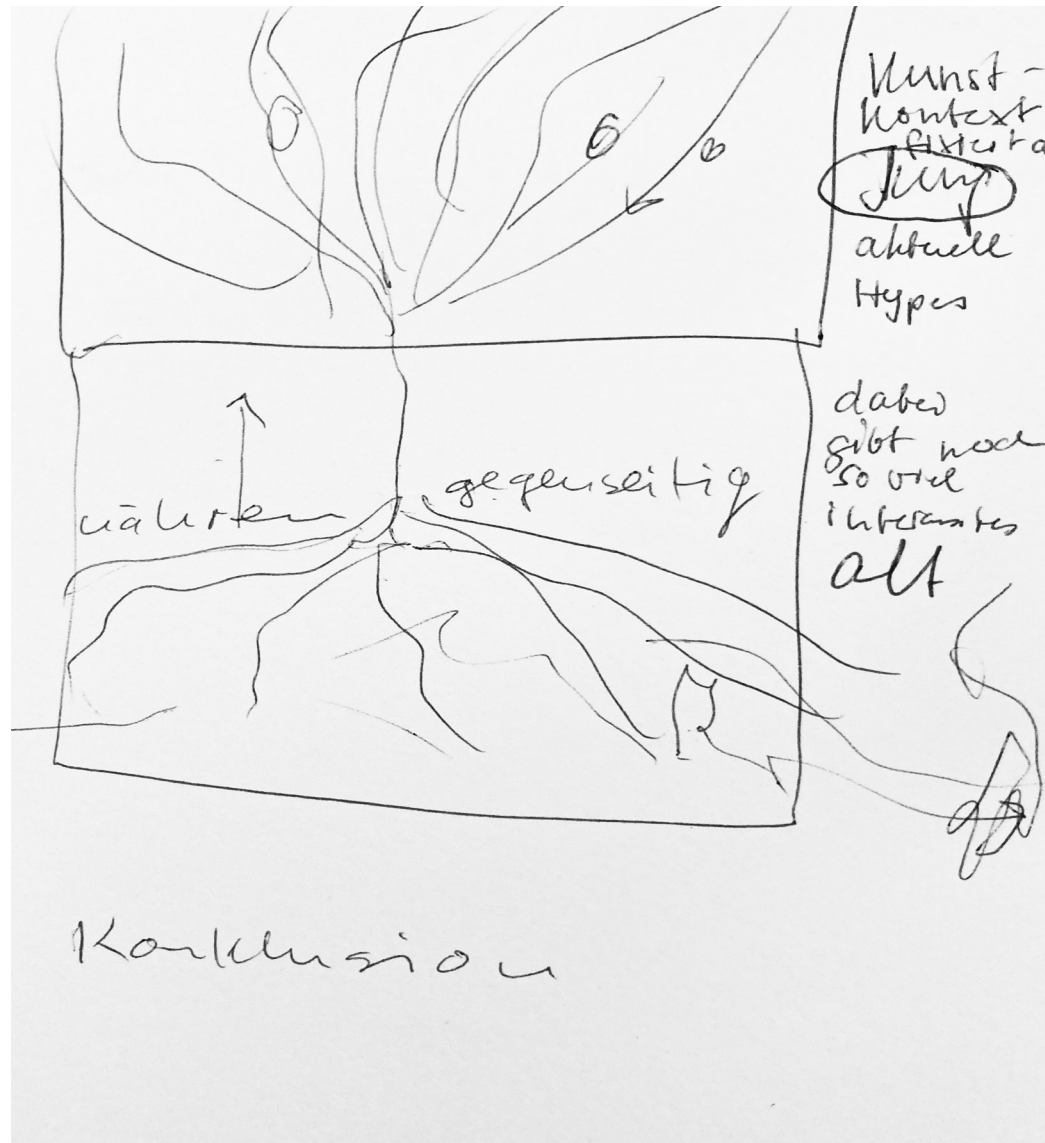 Kunst-
Kontext
fixiert a
Jung
aktuell
Hypes
dabei
gibt noch
so viel
interessantes
alt
nähren gegenseitig
Konklusion